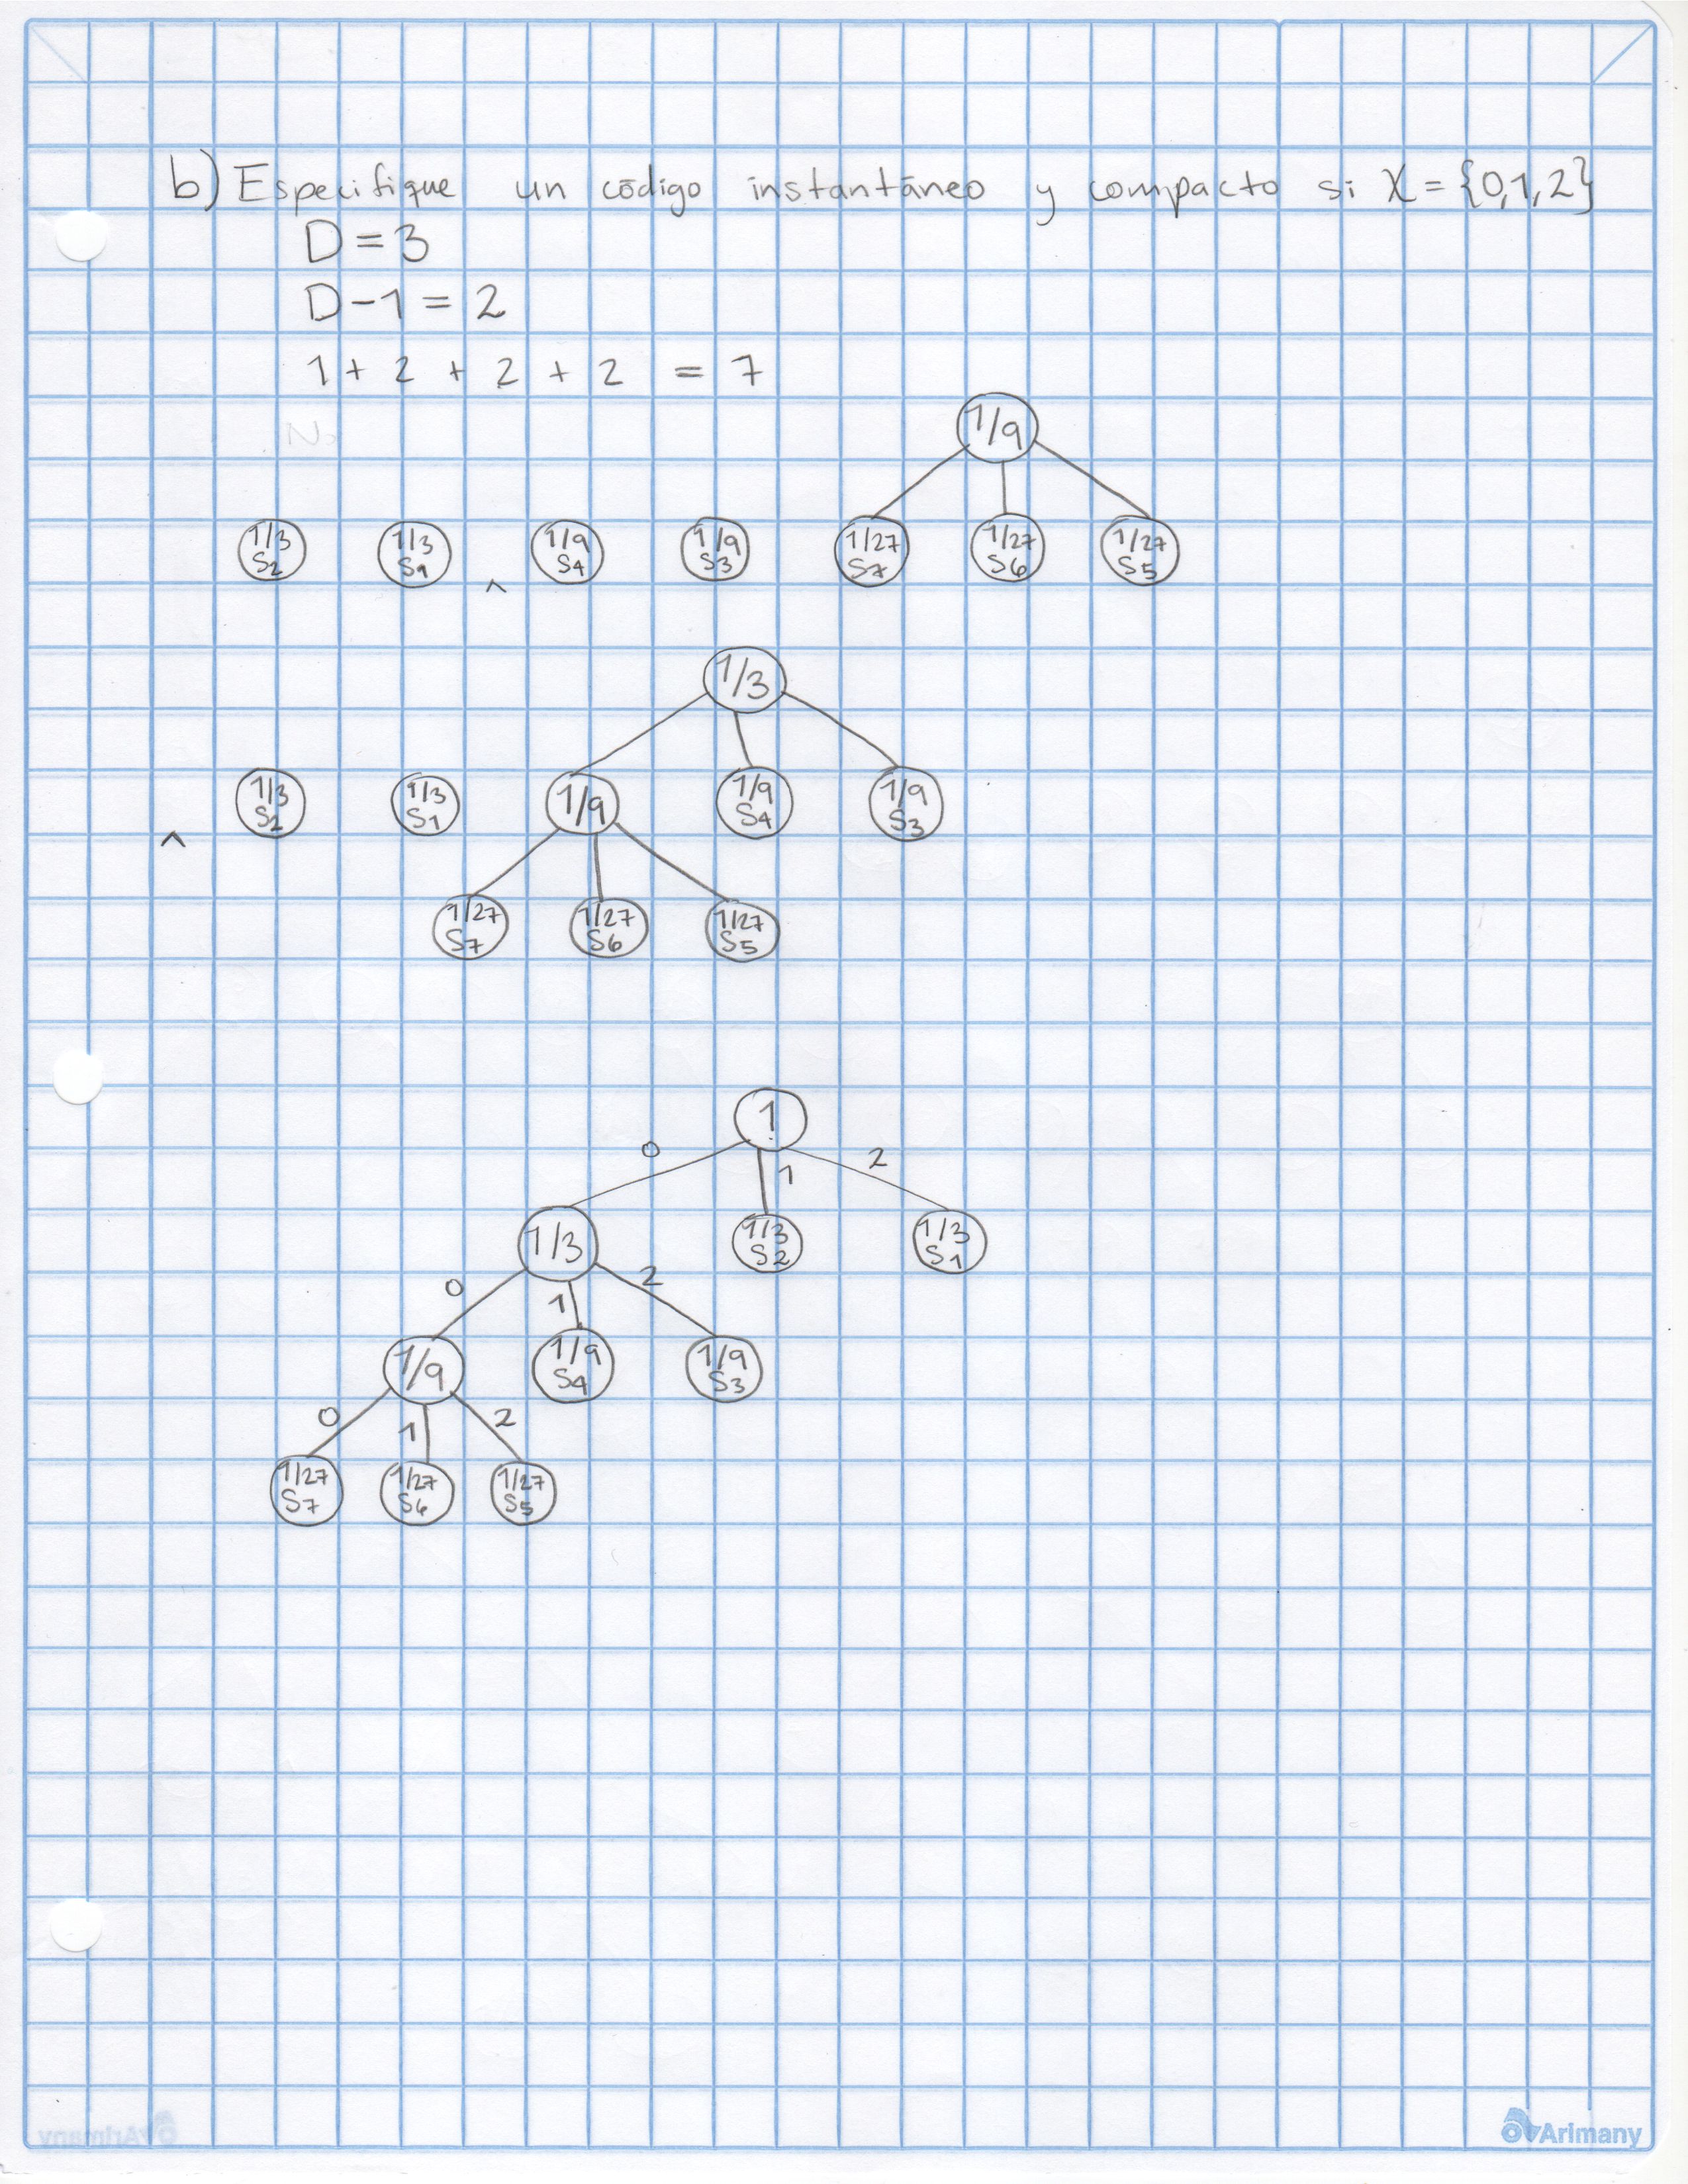 b) Especifique un código instantáneo y compacto si X = {0,1,2}
D = 3
D - 1 = 2
1 + 2 + 2 + 2 = 7
1/9
1/3 S2 1/3 S1 ^ 1/9 S4 1/9 S3 1/27 S7 1/27 S6 1/27 S5
1/3
^ 1/3 S2 1/3 S1 1/9 1/9 S4 1/9 S3
1/27 S7 1/27 S6 1/27 S5
1
0 1 2
1/3 1/3 S2 1/3 S1
0 1 2
1/9 1/9 S4 1/9 S3
0 1 2
1/27 S7 1/27 S6 1/27 S5
Arimany